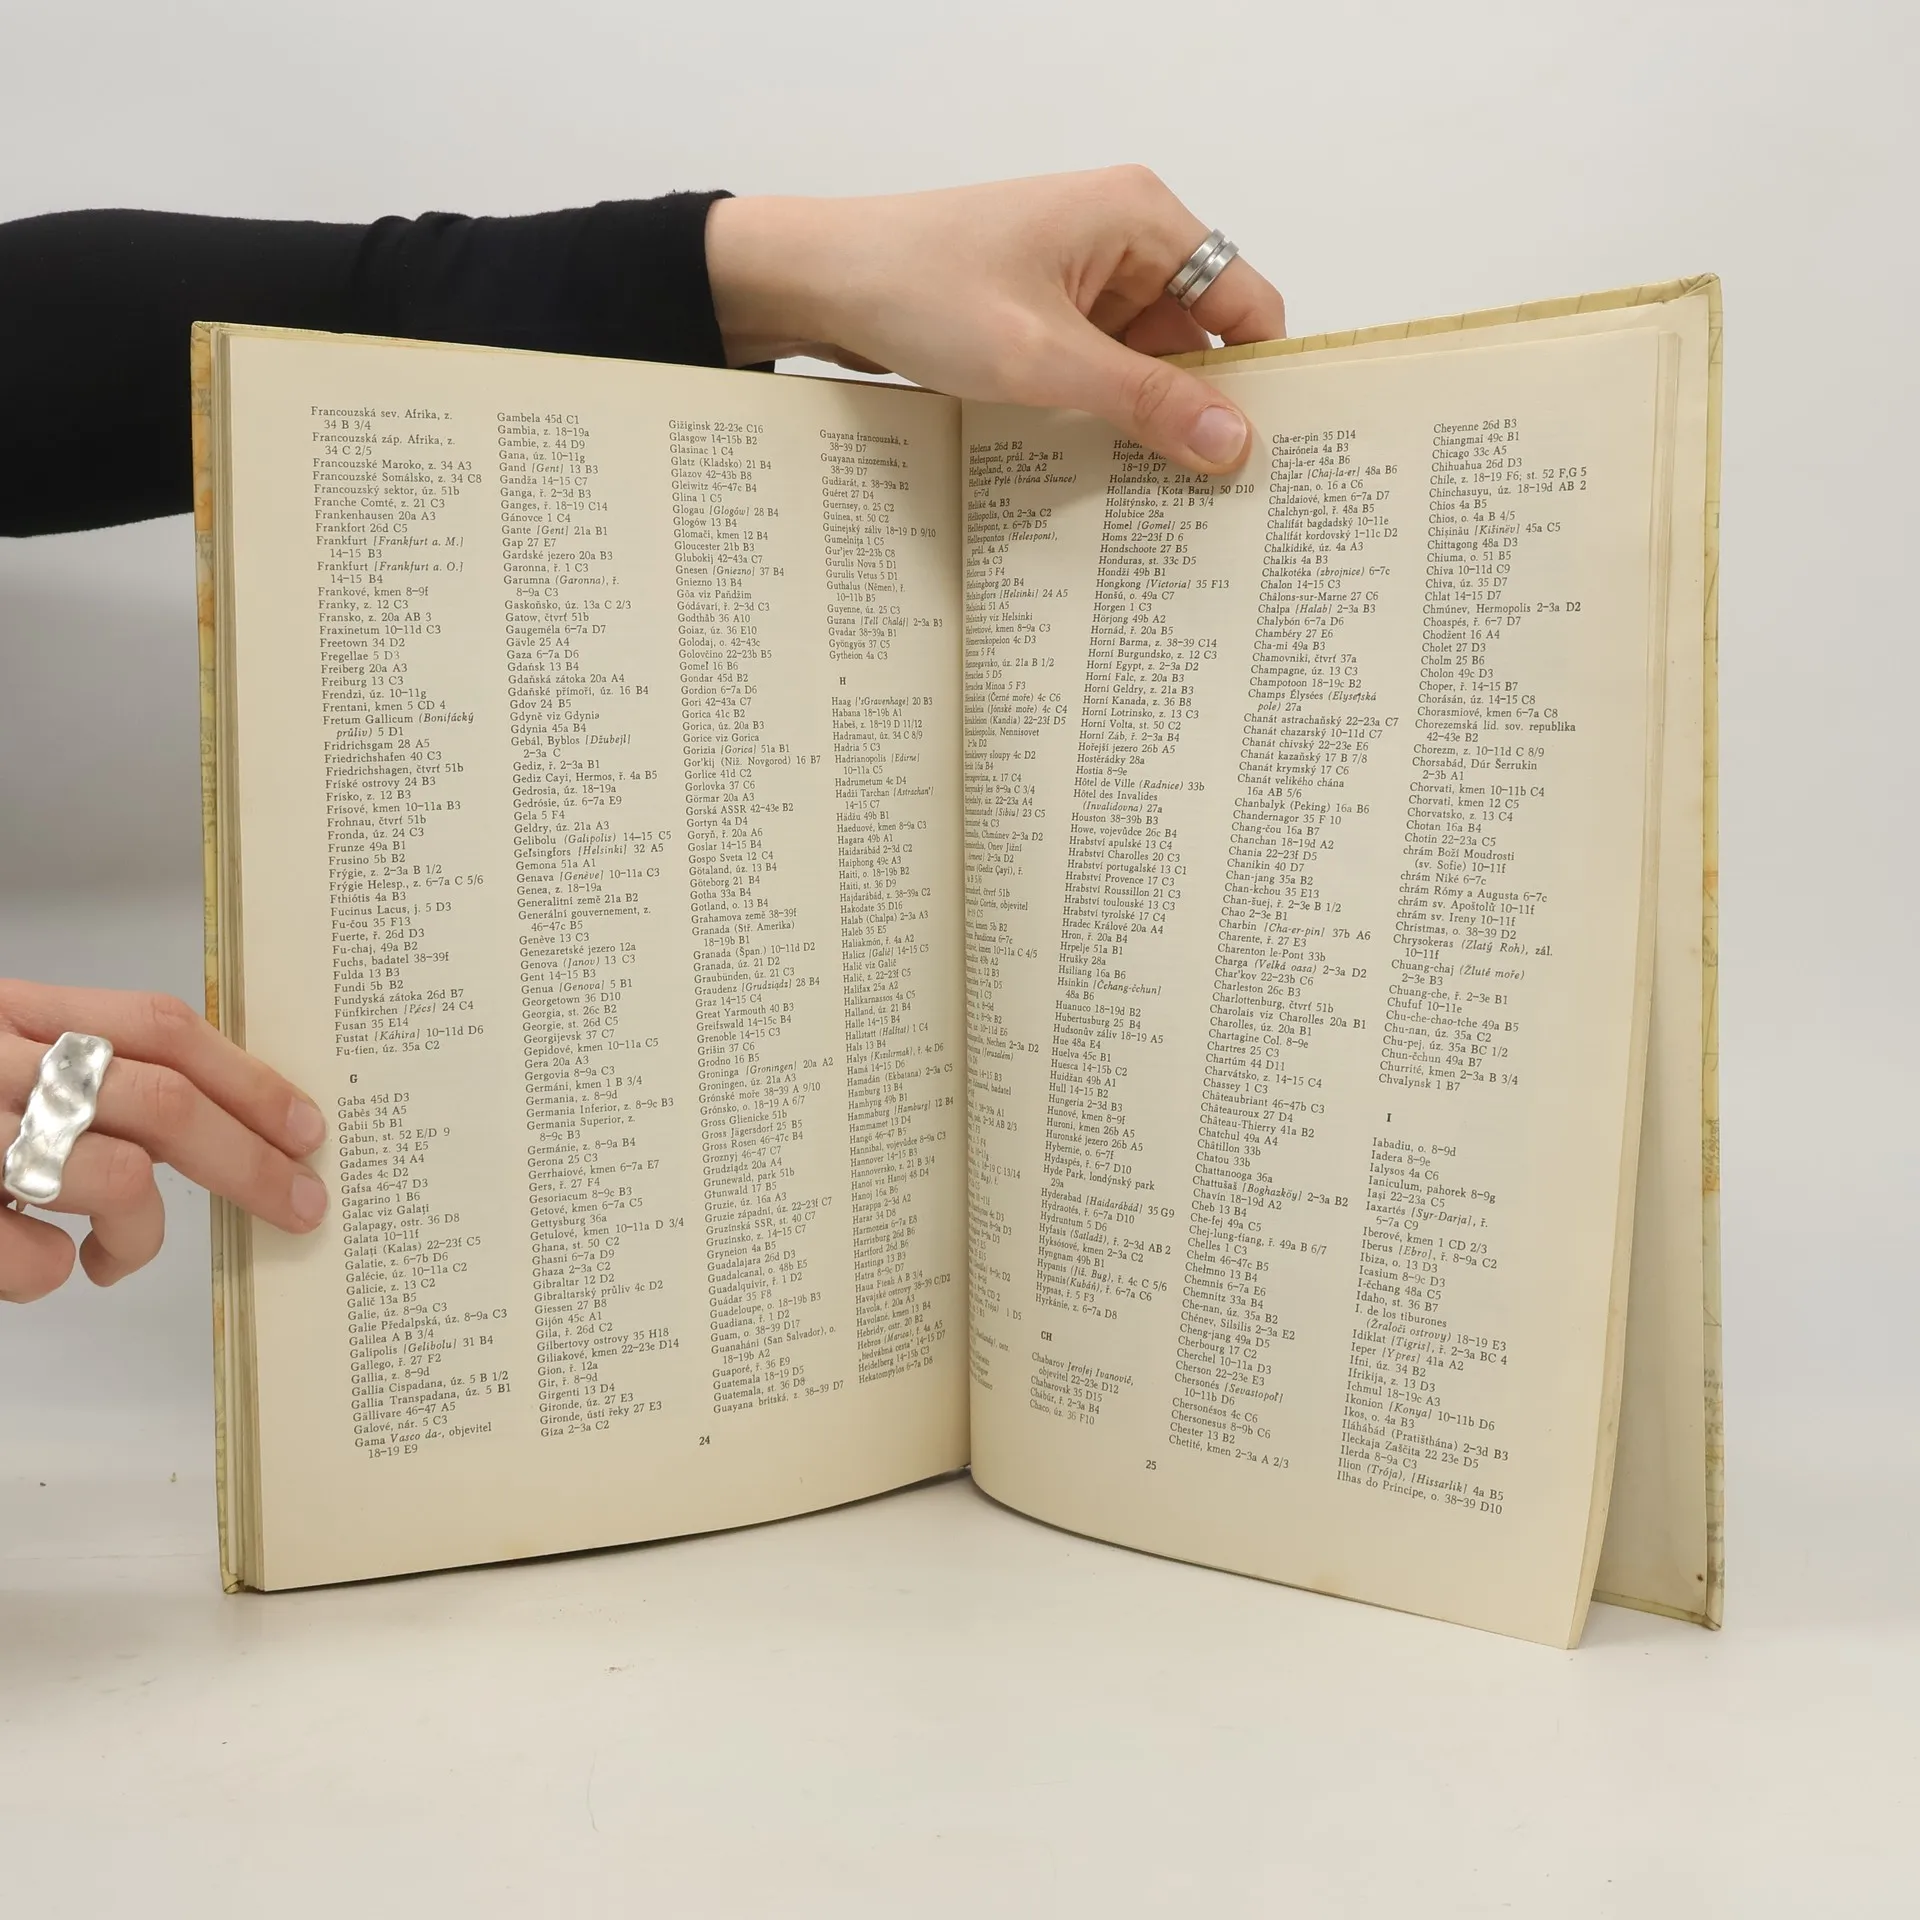 Francouzská sev. Afrika, z.
34 B 3/4
Francouzská záp. Afrika, z.
34 C 2/5
Francouzské Maroko, z. 34 A3
Francouzské Somálsko, z. 34 C8
Francouzský sektor, úz. 51b
Franche Comté, z. 21 C3
Frankenhausen 20a A3
Frankfort 26d C5
Frankfurt [Frankfurt a. M.]
14-15 B3
Frankfurt [Frankfurt a. O.]
14-15 B4
Frankové, kmen 8-9f
Franky, z. 12 C3
Fransko, z. 20a AB 3
Fraxinetum 10-11d C3
Freetown 34 D2
Fregellae 5 D3
Freiberg 20a A3
Freiburg 13 C3
Frendzi, úz. 10-11g
Frentani, kmen 5 CD 4
Fretum Gallicum (Bonifácký
průliv) 5 D1
Fridrichsgam 28 A5
Friedrichshafen 40 C3
Friedrichshagen, čtvrť 51b
Friské ostrovy 24 B3
Frísko, z. 12 B3
Frísové, kmen 10-11a B3
Frohnau, čtvrť 51b
Fronda, úz. 24 C3
Frunze 49a B1
Frusino 5b B2
Frýgie, z. 2-3a B 1/2
Frýgie Helesp., z. 6-7a C 5/6
Fthiótis 4a B3
Fucinus Lacus, j. 5 D3
Fu-čou 35 F13
Fuerte, ř. 26d D3
Fu-chaj, 49a B2
Fuchs, badatel 38-39f
Fulda 13 B3
Fundi 5b B2
Fundyská zátoka 26d B7
Fünfkirchen [Pécs] 24 C4
Fusan 35 E14
Fustat [Káhira] 10-11d D6
Fu-ťien, úz. 35a C2
G
Gaba 45d D3
Gabès 34 A5
Gabii 5b B1
Gabun, st. 52 E/D 9
Gabun, z. 34 E5
Gadames 34 A4
Gades 4c D2
Gafsa 46-47 D3
Gagarino 1 B6
Galac viz Galați
Galapagy, ostr. 36 D8
Galata 10-11f
Galați (Kalas) 22-23f C5
Galatie, z. 6-7b D6
Galécie, úz. 10-11a C2
Galicie, z. 13 C2
Galič 13a B5
Galie, úz. 8-9a C3
Galie Předalpská, úz. 8-9a C3
Galilea A B 3/4
Galipolis [Gelibolu] 31 B4
Gallego, ř. 27 F2
Gallia, z. 8-9d
Gallia Cispadana, úz. 5 B 1/2
Gallia Transpadana, úz. 5 B1
Gällivare 46-47 A5
Galové, nár. 5 C3
Gama Vasco da-, objevitel
18-19 E9
Gambela 45d C1
Gambia, z. 18-19a
Gambie, z. 44 D9
Gana, úz. 10-11g
Gand [Gent] 13 B3
Gandža 14-15 C7
Ganga, ř. 2-3d B3
Ganges, ř. 18-19 C14
Gánovce 1 C4
Gante [Gent] 21a B1
Gap 27 E7
Gardské jezero 20a B3
Garonna, ř. 1 C3
Garumna (Garonna), ř.
8-9a C3
Gaskoňsko, úz. 13a C 2/3
Gatow, čtvrť 51b
Gaugeméla 6-7a D7
Gävle 25 A4
Gaza 6-7a D6
Gdańsk 13 B4
Gdaňská zátoka 20a A4
Gdaňské přímoří, úz. 16 B4
Gdov 24 B5
Gdyně viz Gdynia
Gdynia 45a B4
Gebál, Byblos [Džubejl]
2-3a C
Gediz, ř. 2-3a B1
Gediz Cayi, Hermos, ř. 4a B5
Gedrosia, úz. 18-19a
Gedrósie, úz. 6-7a E9
Gela 5 F4
Geldry, úz. 21a A3
Gelibolu (Galipolis) 14-15 C5
Geľsingfors [Helsinki] 32 A5
Gemona 51a A1
Genava [Genève] 10-11a C3
Genea, z. 18-19a
Generalitní země 21a B2
Generální gouvernement, z.
46-47c B5
Genève 13 C3
Genezaretské jezero 12a
Genova (Janov) 13 C3
Gent 14-15 B3
Genua [Genova] 5 B1
Georgetown 36 D10
Georgia, st. 26c B2
Georgie, st. 26d C5
Georgijevsk 37 C7
Gepidové, kmen 10-11a C5
Gera 20a A3
Gergovia 8-9a C3
Germáni, kmen 1 B 3/4
Germania, z. 8-9d
Germania Inferior, z. 8-9c B3
Germania Superior, z.
8-9c B3
Germánie, z. 8-9a B4
Gerona 25 C3
Gerrhaiové, kmen 6-7a E7
Gers, ř. 27 F4
Gesoriacum 8-9c B3
Getové, kmen 6-7a C5
Gettysburg 36a
Getulové, kmen 10-11a D 3/4
Ghana, st. 50 C2
Ghasni 6-7a D9
Ghaza 2-3a C2
Gibraltar 12 D2
Gibraltarský průliv 4c D2
Giessen 27 B8
Gijón 45c A1
Gila, ř. 26d C2
Gilbertovy ostrovy 35 H18
Giliakové, kmen 22-23e D14
Gion, ř. 12a
Gir, ř. 8-9d
Girgenti 13 D4
Gironde, úz. 27 E3
Gironde, ústí řeky 27 E3
Gíza 2-3a C2
Gižiginsk 22-23e C16
Glasgow 14-15b B2
Glasinac 1 C4
Glatz (Kladsko) 21 B4
Glazov 42-43b B8
Gleiwitz 46-47c B4
Glina 1 C5
Glogau [Glogów] 28 B4
Glogów 13 B4
Glomači, kmen 12 B4
Gloucester 21b B3
Glubokij 42-43a C7
Gnesen [Gniezno] 37 B4
Gniezno 13 B4
Góa viz Paňdžim
Gódávarí, ř. 2-3d C3
Godthåb 36 A10
Goiaz, úz. 36 E10
Golodaj, o. 42-43c
Golovčino 22-23b B5
Gomeľ 16 B6
Gondar 45d B2
Gordion 6-7a D6
Gori 42-43a C7
Gorica 41c B2
Gorica, úz. 20a B3
Gorice viz Gorica
Gorizia [Gorica] 51a B1
Gor'kij (Niž. Novgorod) 16 B7
Gorlice 41d C2
Gorlovka 37 C6
Görmar 20a A3
Gorská ASSR 42-43e B2
Gortyn 4a D4
Goryň, ř. 20a A6
Goslar 14-15 B4
Gospo Sveta 12 C4
Götaland, úz. 13 B4
Göteborg 21 B4
Gotha 33a B4
Gotland, o. 13 B4
Grahamova země 38-39f
Granada (Stř. Amerika)
18-19b B1
Granada (Špan.) 10-11d D2
Granada, úz. 21 D2
Graubünden, úz. 21 C3
Graudenz [Grudziądz] 28 B4
Graz 14-15 C4
Great Yarmouth 40 B3
Greifswald 14-15c B4
Grenoble 14-15 C3
Grišin 37 C6
Grodno 16 B5
Groninga [Groningen] 20a A2
Groningen, úz. 21a A3
Grónské moře 38-39 A 9/10
Grónsko, o. 18-19 A 6/7
Gross Glienicke 51b
Gross Jägersdorf 25 B5
Gross Rosen 46-47c B4
Groznyj 46-47 C7
Grudziądz 20a A4
Grunewald, park 51b
Grunwald 17 B5
Gruzie, úz. 16a A3
Gruzie západní, úz. 22-23f C7
Gruzínská SSR, st. 40 C7
Gruzínsko, z. 14-15 C7
Gryneion 4a B5
Guadalajara 26d D3
Guadalcanal, o. 48b E5
Guadalquivir, ř. 1 D2
Guádar 35 F8
Guadeloupe, o. 18-19b B3
Guadiana, ř. 1 D2
Guam, o. 38-39 D17
Guanahání (San Salvador), o.
18-19b A2
Guaporé, ř. 36 E9
Guatemala 18-19 D5
Guatemala, st. 36 D8
Guayana britská, z. 38-39 D7
Guayana francouzská, z.
38-39 D7
Guayana nizozemská, z.
38-39 D7
Gudžarát, z. 38-39a B2
Guéret 27 D4
Guernsey, o. 25 C2
Guinea, st. 50 C2
Guinejský záliv 18-19 D 9/10
Gumelnița 1 C5
Gur'jev 22-23b C8
Gurulis Nova 5 D1
Gurulis Vetus 5 D1
Guthalus (Němen), ř.
10-11b B5
Guyenne, úz. 25 C3
Guzana [Tell Chaláf] 2-3a B3
Gvadar 38-39a B1
Gyöngyös 37 C5
Gytheion 4a C3
H
Haag ['sGravenhage] 20 B3
Habana 18-19b A1
Habeš, z. 18-19 D 11/12
Hadramaut, úz. 34 C 8/9
Hadria 5 C3
Hadrianopolis [Edirne]
10-11a C5
Hadrumetum 4c D4
Hadži Tarchan [Astrachan']
14-15 C7
Hádžu 49b B1
Haeduové, kmen 8-9a C3
Hagara 49b A1
Haidarábád 2-3d C2
Haiphong 49c A3
Haiti, o. 18-19b B2
Haiti, st. 36 D9
Hajdarábád, z. 38-39a C2
Hakodate 35 D16
Halab (Chalpa) 2-3a A3
Haleb 35 E5
Haliakmón, ř. 4a A2
Halicz [Galič] 14-15 C5
Halič viz Galič
Halič, z. 22-23f C5
Halifax 25a A2
Halikarnassos 4a C5
Halland, úz. 21 B4
Halle 14-15 B4
Hallstatt (Halštat) 1 C4
Hals 13 B4
Halys [Kizilirmak], ř. 4c D6
Hamá 14-15 D6
Hamadán (Ekbatana) 2-3a C5
Hamburg 13 B4
Hambyng 49b B1
Hammaburg [Hamburg] 12 B4
Hammamet 13 D4
Hangö 46-47 B5
Hannibal, vojevůdce 8-9a C3
Hannover 14-15 B3
Hannoversko, z. 21 B 3/4
Hanoi viz Hanoj 48 D4
Hanoj 16a B6
Harappa 2-3d A2
Harar 34 D8
Harmozeia 6-7a E8
Harrisburg 26d B6
Hartford 26d B6
Hastings 13 B3
Hatra 8-9c D7
Havajské ostrovy 38-39 C/D2
Havola, ř. 20a A3
Havolané, kmen 13 B4
Hebridy, ostr. 20 B2
Hebros (Marica), ř. 4a A5
„hedvábná cesta" 14-15 D7
Heidelberg 14-15b C3
Hekatompylos 6-7a D8
24
Helena 26d B2
Helespont, průl. 2-3e B1
Helgoland, o. 20a A2
Heliaké Pylé (brána Slunce)
6-7d
Heliké 4a B3
Héliopolis, On 2-3a C2
Helléspont, z. 6-7b D5
Hellespontos (Helespont),
průl. 4a A5
18-19 D7
Holandsko, z. 21a A2
Hollandia [Kota Baru] 50 D10
Holštýnsko, z. 21 B 3/4
Holubice 28a
Homel [Gomel] 25 B6
Homs 22-23f D 6
Hondschoote 27 B5
Honduras, st. 33c D5
Hondži 49b B1
Hongkong [Victoria] 35 F13
Honšú, o. 49a C7
Horgen 1 C3
Hörjong 49b A2
Hornád, ř. 20a B5
Horní Barma, z. 38-39 C14
Horní Burgundsko, z. 12 C3
Horní Egypt, z. 2-3a D2
Horní Falc, z. 20a B3
Horní Geldry, z. 21a B3
Horní Kanada, z. 36 B8
Horní Lotrinsko, z. 13 C3
Horní Volta, st. 50 C2
Horní Záb, ř. 2-3a B4
Hořejší jezero 26b A5
Hostěrádky 28a
Hostia 8-9e
Hôtel de Ville (Radnice) 33b
Hôtel des Invalides
(Invalidovna) 27a
Houston 38-39b B3
Howe, vojevůdce 26c B4
Hrabství apulské 13 C4
Hrabství Charolles 20 C3
Hrabství portugalské 13 C1
Hrabství Provence 17 C3
Hrabství Roussillon 21 C3
Hrabství toulouské 13 C3
Hrabství tyrolské 17 C4
Hradec Králové 20a A4
Hron, ř. 20a B4
Hrpelje 51a B1
Hrušky 28a
Hsiliang 16a B6
Hsinkin [Čchang-čchun]
48a B6
Huanuco 18-19d B2
Hubertusburg 25 B4
Hudsonův záliv 18-19 A5
Hue 48a E4
Huelva 45c B1
Huesca 14-15b C2
Huidžan 49b A1
Hull 14-15 B2
Hungeria 2-3d B3
Hunové, kmen 8-9f
Huroni, kmen 26b A5
Huronské jezero 26b A5
Hybernie, o. 6-7f
Hydaspés, ř. 6-7 D10
Hyde Park, londýnský park
29a
Hyderabad [Haidarábád] 35 G9
Hydraotés, ř. 6-7a D10
Hydruntum 5 D6
Hyfasis (Satladž), ř. 2-3d AB 2
Hyksósové, kmen 2-3a C2
Hyngnam 49b B1
Hypanis (Již. Bug), ř. 4c C 5/6
Hypanis(Kubáň), ř. 6-7a C6
Hypsas, ř. 5 F3
Hyrkánie, z. 6-7a D8
CH
Chabarov Jerofej Ivanovič,
objevitel 22-23e D12
Chabarovsk 35 D15
Chábúr, ř. 2-3a B4
Chaco, úz. 36 F10
Cha-er-pin 35 D14
Chairóneia 4a B3
Chaj-la-er 48a B6
Chajlar [Chaj-la-er] 48a B6
Chaj-nan, o. 16 a C6
Chaldaiové, kmen 6-7a D7
Chalchyn-gol, ř. 48a B5
Chalífát bagdadský 10-11e
Chalífát kordovský 1-11c D2
Chalkidiké, úz. 4a A3
Chalkis 4a B3
Chalkotéka (zbrojnice) 6-7c
Chalon 14-15 C3
Châlons-sur-Marne 27 C6
Chalpa [Halab] 2-3a B3
Chalybón 6-7a D6
Chambéry 27 E6
Cha-mi 49a B3
Chamovniki, čtvrť 37a
Champagne, úz. 13 C3
Champotoon 18-19c B2
Champs Élysées (Elysejská
pole) 27a
Chanát astrachaňský 22-23a C7
Chanát chazarský 10-11d C7
Chanát chivský 22-23e E6
Chanát kazaňský 17 B 7/8
Chanát krymský 17 C6
Chanát velikého chána
16a AB 5/6
Chanbalyk (Peking) 16a B6
Chandernagor 35 F 10
Chang-čou 16a B7
Chanchan 18-19d A2
Chania 22-23f D5
Chanikin 40 D7
Chan-jang 35a B2
Chan-kchou 35 E13
Chan-šuej, ř. 2-3e B 1/2
Chao 2-3e B1
Charbin [Cha-er-pin] 37b A6
Charente, ř. 27 E3
Charenton le-Pont 33b
Charga (Velká oasa) 2-3a D2
Char'kov 22-23b C6
Charleston 26c B3
Charlottenburg, čtvrť 51b
Charolais viz Charolles 20a B1
Charolles, úz. 20a B1
Chartagine Col. 8-9e
Chartres 25 C3
Chartúm 44 D11
Charvátsko, z. 14-15 C4
Chassey 1 C3
Châteaubriant 46-47b C3
Châteauroux 27 D4
Château-Thierry 41a B2
Chatchul 49a A4
Châtillon 33b
Chatou 33b
Chattanooga 36a
Chattušaš [Boghazköy] 2-3a B2
Chavín 18-19d A2
Cheb 13 B4
Che-fej 49a C5
Chej-lung-ťiang, ř. 49a B 6/7
Chelles 1 C3
Chełm 46-47c B5
Chełmno 13 B4
Chemnis 6-7a E6
Chemnitz 33a B4
Che-nan, úz. 35a B2
Chénev, Silsilis 2-3a E2
Cheng-jang 49a D5
Cherbourg 17 C2
Cherchel 10-11a D3
Cherson 22-23e E3
Chersonés [Sevastopol]
10-11b D6
Chersonésos 4c C6
Chersonesus 8-9b C6
Chester 13 B2
Chetité, kmen 2-3a A 2/3
Cheyenne 26d B3
Chiangmai 49c B1
Chicago 33c A5
Chihuahua 26d D3
Chile, z. 18-19 F6; st. 52 F,G 5
Chinchasuyu, úz. 18-19d AB 2
Chios 4a B5
Chios, o. 4a B 4/5
Chișinău [Kišiněv] 45a C5
Chittagong 48a D3
Chiuma, o. 51 B5
Chiva 10-11d C9
Chiva, úz. 35 D7
Chlat 14-15 D7
Chmúnev, Hermopolis 2-3a D2
Choaspés, ř. 6-7 D7
Chodžent 16 A4
Cholet 27 D3
Cholm 25 B6
Cholon 49c D3
Choper, ř. 14-15 B7
Chorásán, úz. 14-15 C8
Chorasmiové, kmen 6-7a C8
Chorezemská lid. sov. republika
42-43e B2
Chorezm, z. 10-11d C 8/9
Chorsabád, Dúr Šerrukin
2-3b A1
Chorvati, kmen 10-11b C4
Chorvati, kmen 12 C5
Chorvatsko, z. 13 C4
Chotan 16a B4
Chotin 22-23a C5
chrám Boží Moudrosti
(sv. Sofie) 10-11f
chrám Niké 6-7c
chrám Rómy a Augusta 6-7c
chrám sv. Apoštolů 10-11f
chrám sv. Ireny 10-11f
Christmas, o. 38-39 D2
Chrysokeras (Zlatý Roh), zál.
10-11f
Chuang-chaj (Žluté moře)
2-3e B3
Chuang-che, ř. 2-3e B1
Chufuf 10-11e
Chu-che-chao-tche 49a B5
Chu-nan, úz. 35a C2
Chu-pej, úz. 35a BC 1/2
Chun-čchun 49a B7
Churrité, kmen 2-3a B 3/4
Chvalynsk 1 B7
I
Iabadiu, o. 8-9d
Iadera 8-9e
Ialysos 4a C6
Ianiculum, pahorek 8-9g
Iași 22-23a C5
Iaxartés [Syr-Darja], ř.
6-7a C9
Iberové, kmen 1 CD 2/3
Iberus [Ebro], ř. 8-9a C2
Ibiza, o. 13 D3
Icasium 8-9c D3
I-čchang 48a C5
Idaho, st. 36 B7
I. de los tiburones
(Žraločí ostrovy) 18-19 E3
Idiklat [Tigris], ř. 2-3a BC 4
Ieper [Ypres] 41a A2
Ifni, úz. 34 B2
Ifríkija, z. 13 D3
Ichmul 18-19c A3
Ikonion [Konya] 10-11b D6
Ikos, o. 4a B3
Iláhábád (Pratišthána) 2-3d B3
Ileckaja Zaščita 22 23e D5
Ilerda 8-9a C3
Ilion (Trója), [Hissarlik] 4a B5
Ilhas do Principe, o. 38-39 D10
25